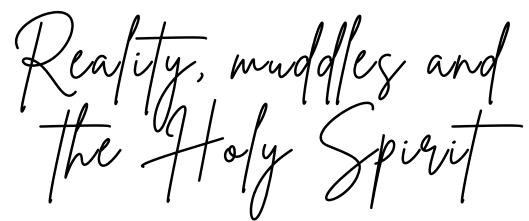 Reality, muddles and
the Holy Spirit